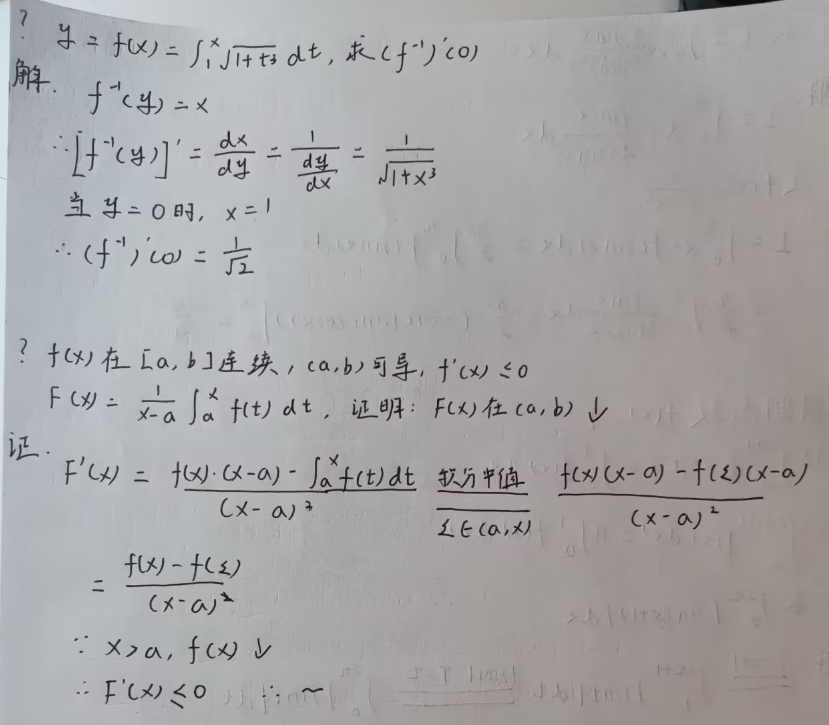 ? y = f(x) = ∫₁ˣ √(1+t³) dt, 求 (f⁻¹)'(0)
解. f⁻¹(y) = x
∴ [f⁻¹(y)]' = dx/dy = 1/(dy/dx) = 1/√(1+x³)
当 y = 0 时, x = 1
∴ (f⁻¹)'(0) = 1/√2
? f(x) 在 [a, b] 连续, (a, b) 可导, f'(x) ≤ 0
F(x) = 1/(x-a) ∫ₐˣ f(t) dt, 证明: F(x) 在 (a, b) ↓
证. F'(x) = (f(x)·(x-a) - ∫ₐˣ f(t) dt)/(x-a)² 积分中值 ξ∈(a,x) (f(x)(x-a) - f(ξ)(x-a))/(x-a)²
= (f(x) - f(ξ))/(x-a)²
∵ x>a, f(x) ↓
∴ F'(x) ≤ 0 ∴ ~